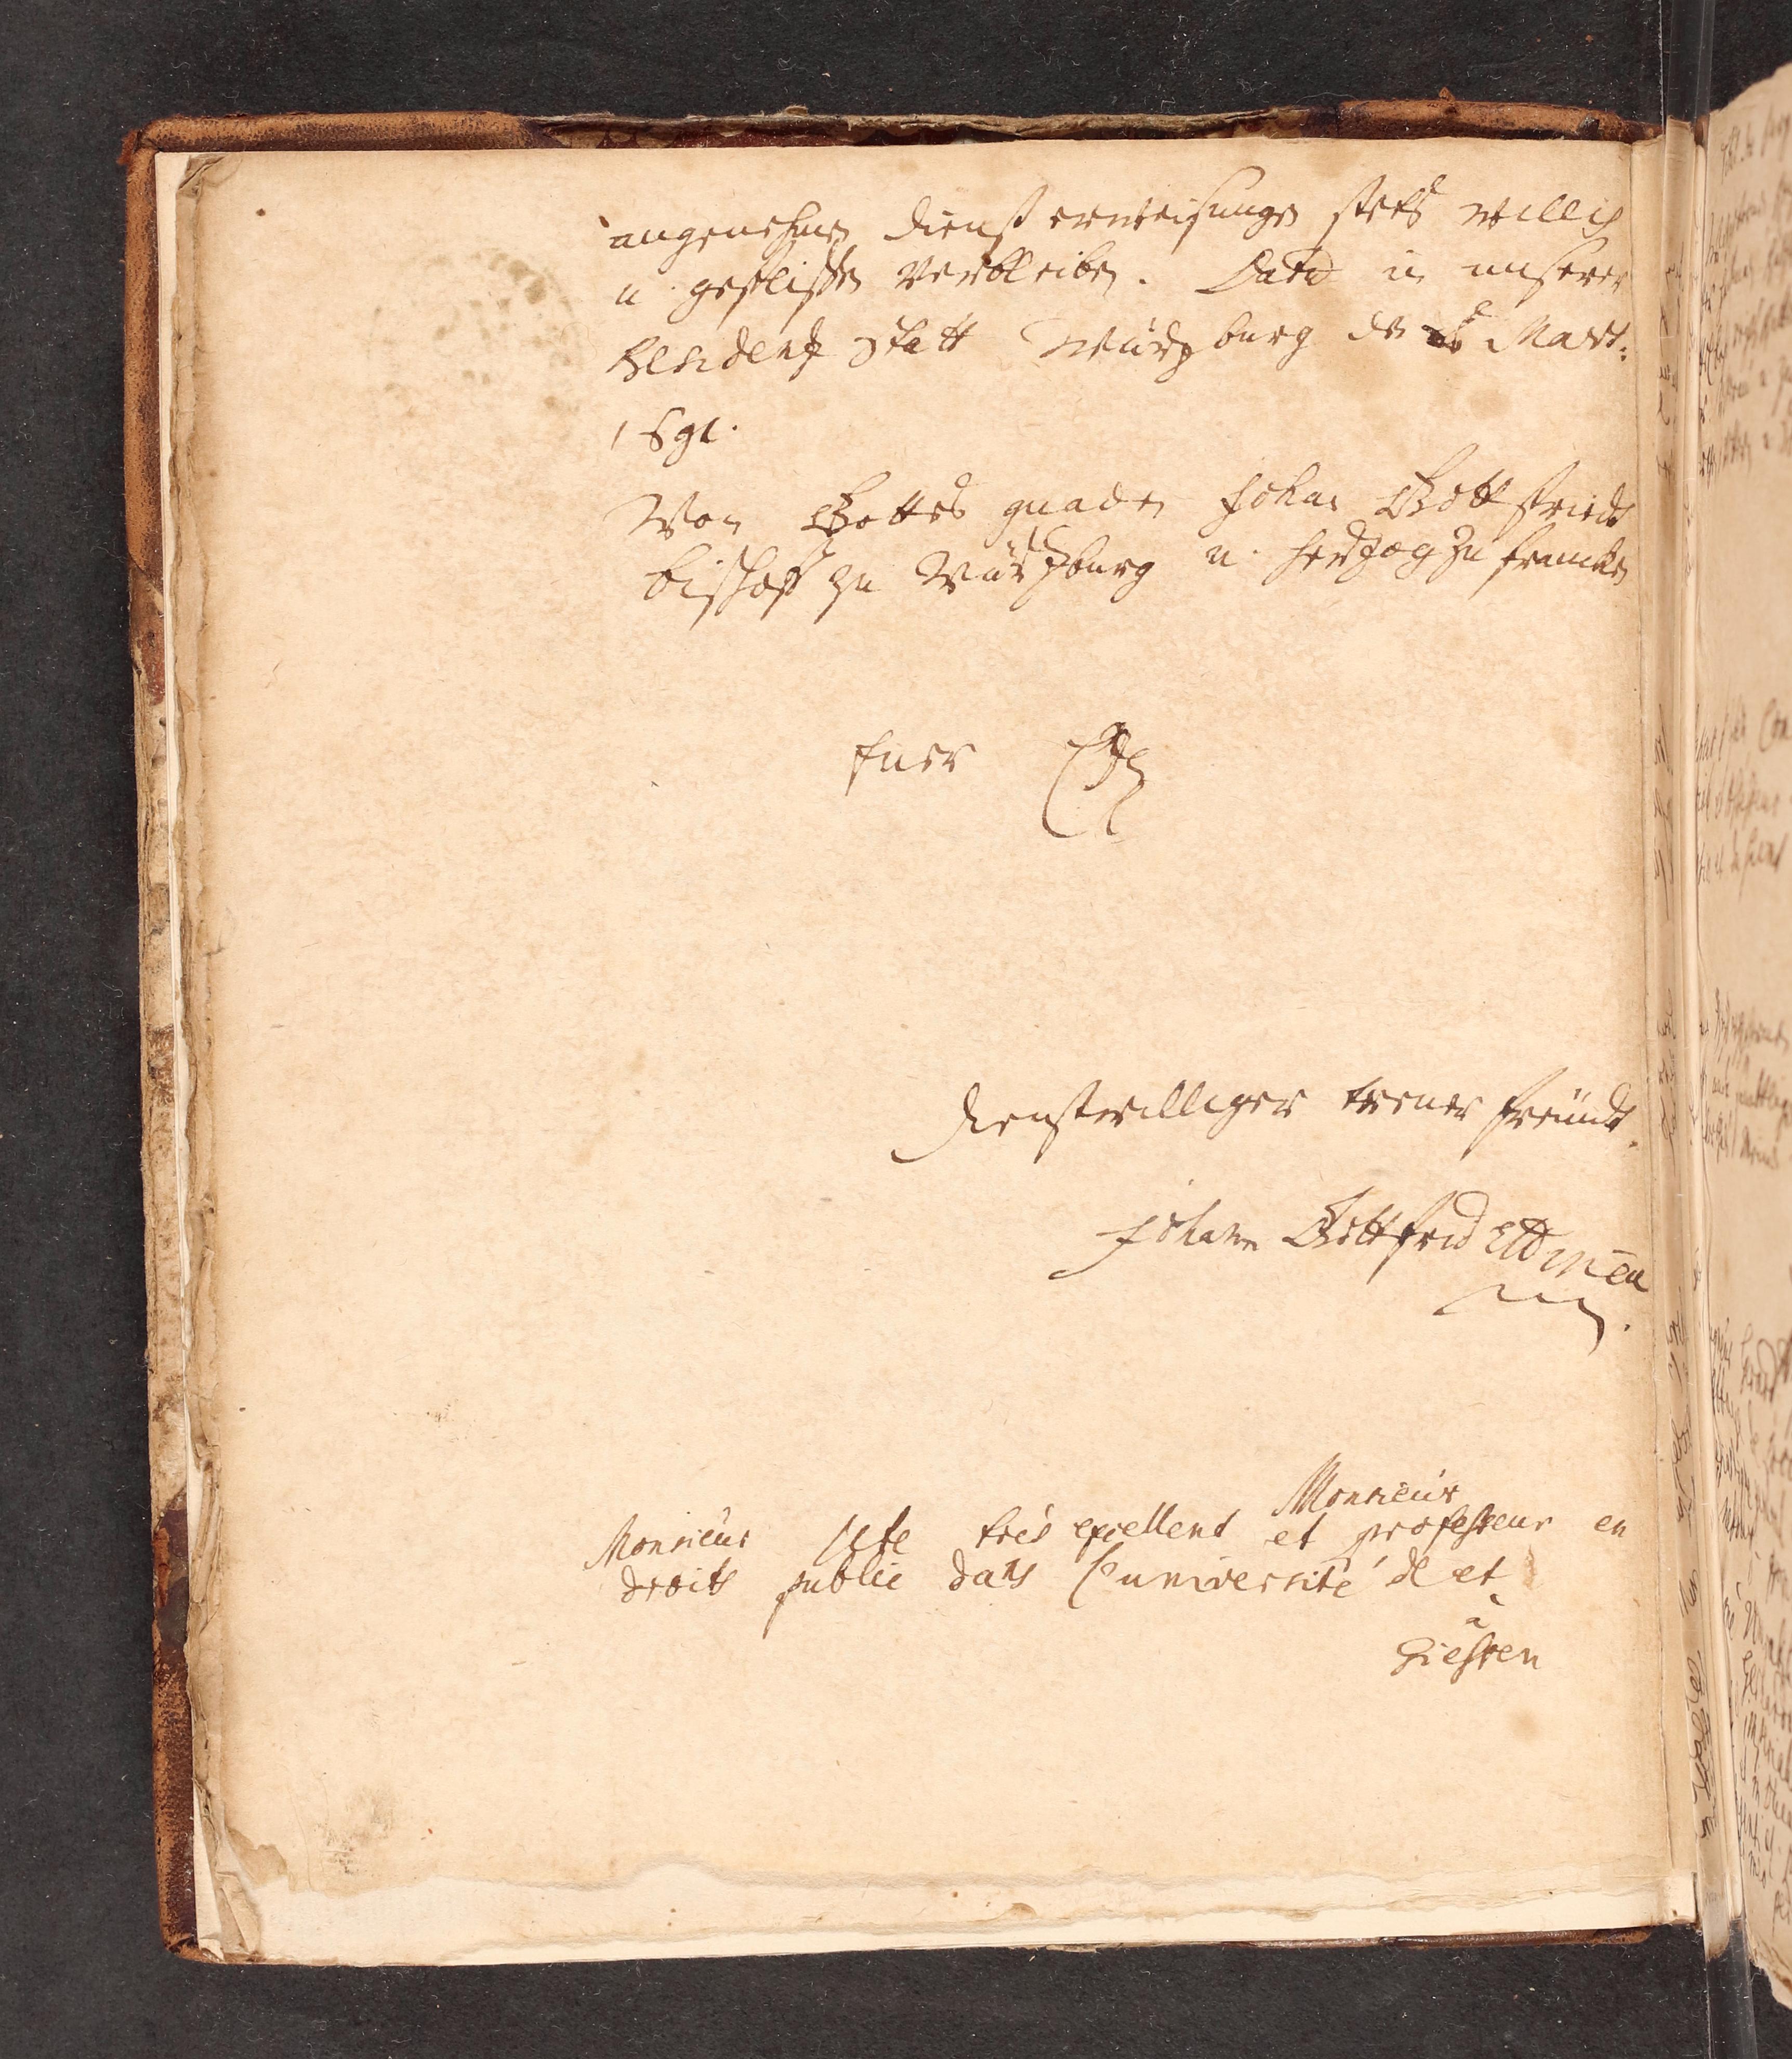 angenehmen dienst erweisungen stets willig
u. geflissen verbleiben. Datd in unserer
Residentz Statt Würtzburg den Mart:
1691.
Von Gottes gnaden Johan Gottfriedt
bischoff zu Würtzburg u. Hertzog zu francken
Euer
dienstwilliger treuer freündt.
Johann Gottfrid
Monsieur
Monsieur tres excellent et professeur en
droits public dans l'université de et
a
Giessen